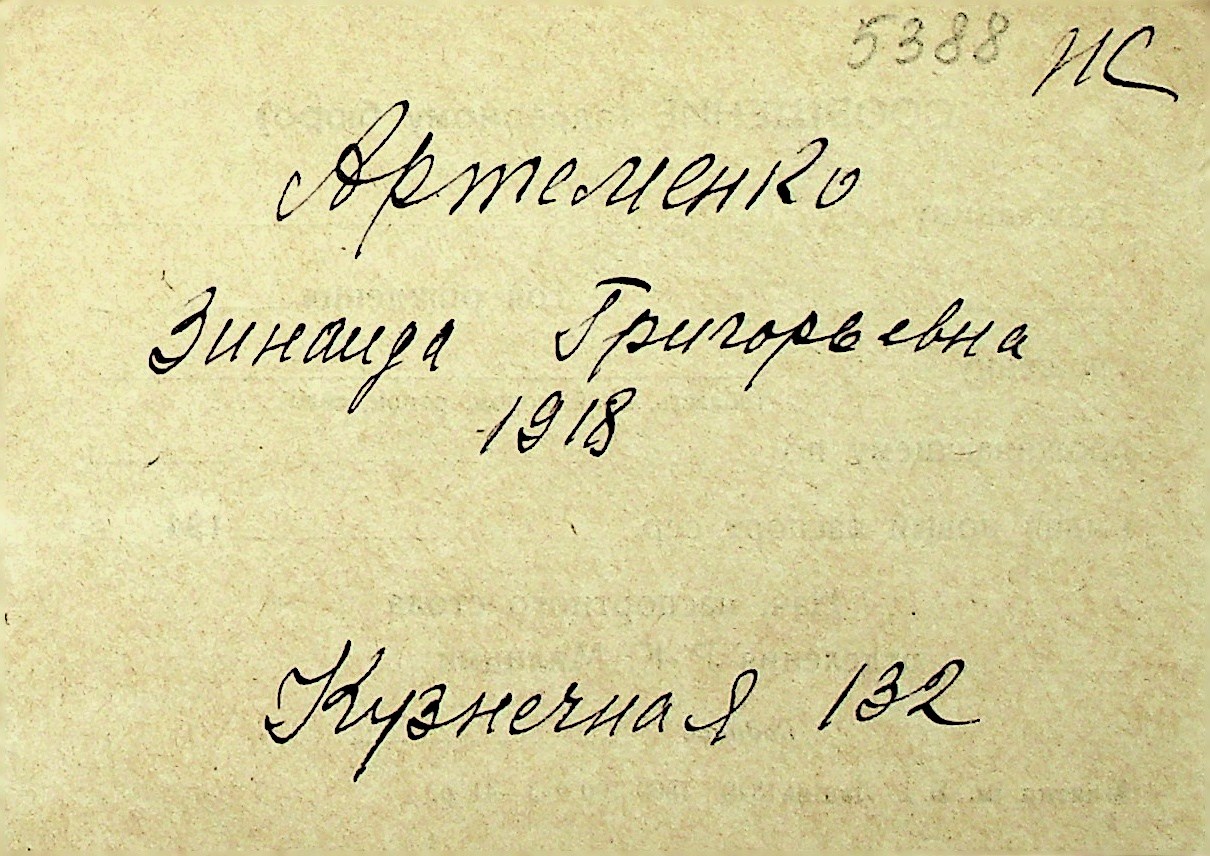 5388 ИС
Артеменко
Зинаида Григорьевна
1918
Кузнечная 132